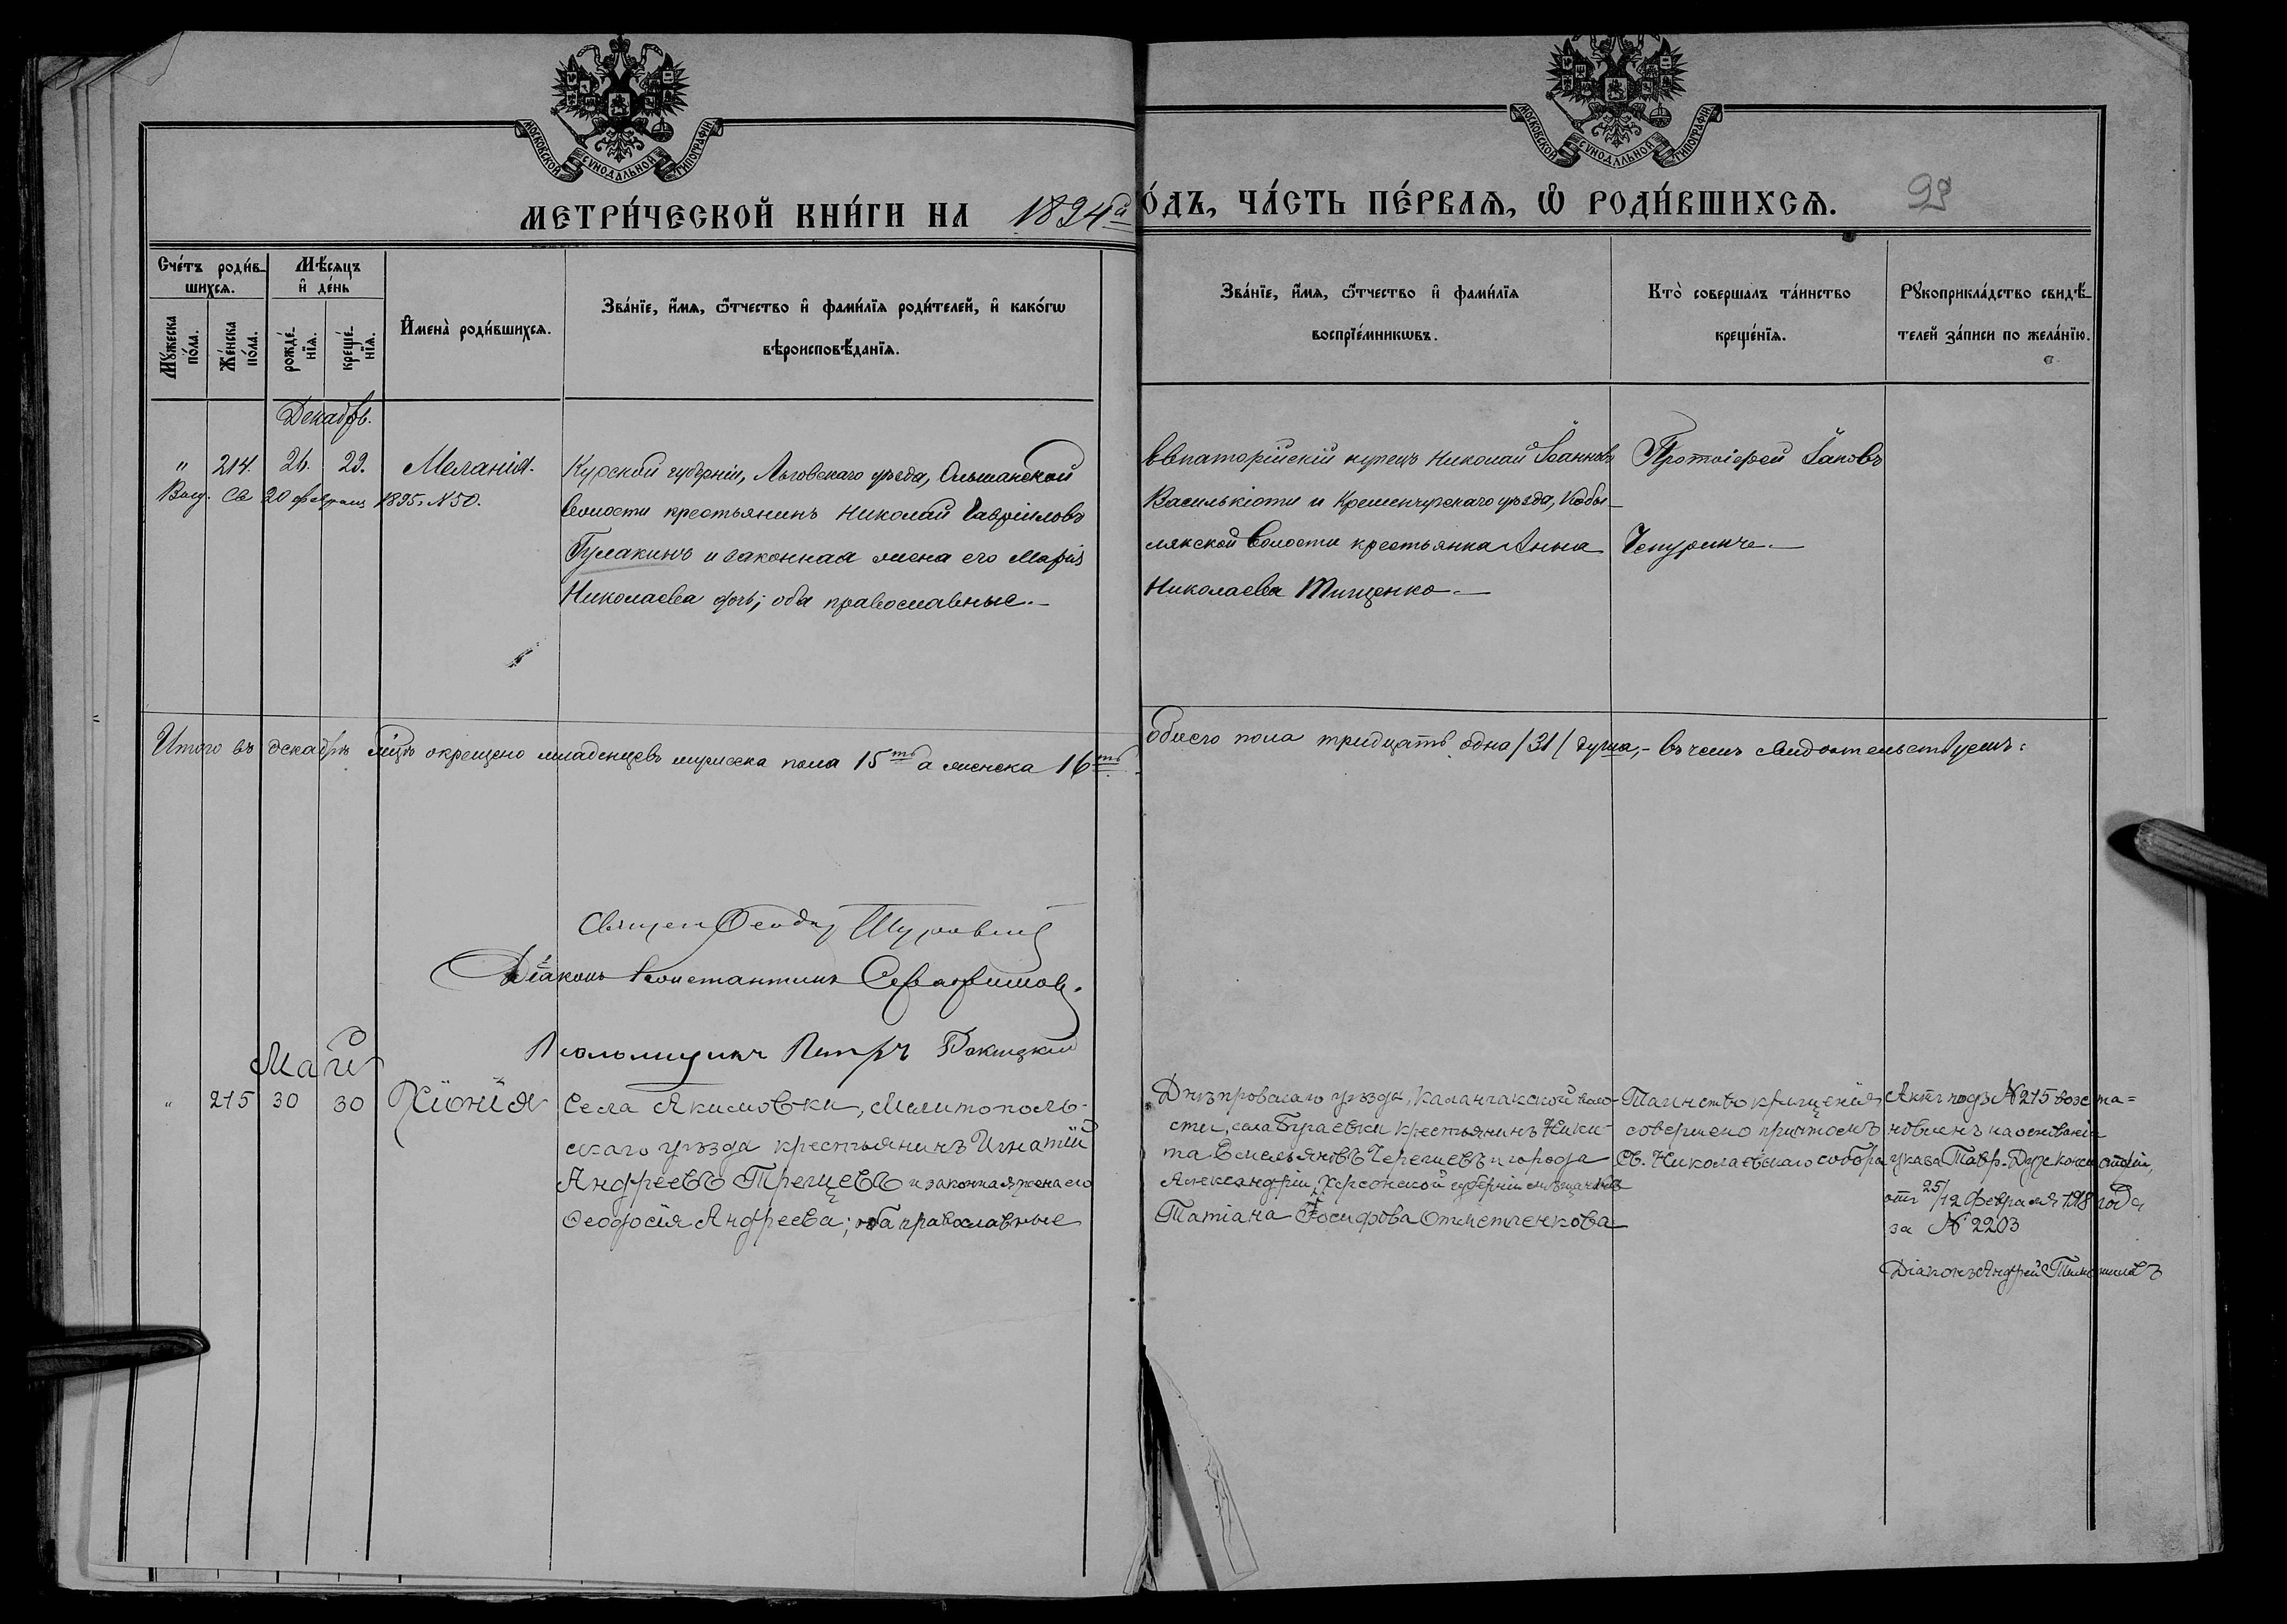 МОСКОВСКОЙ СѴНОДАЛЬНОЙ ТИПОГРАФІИ
МОСКОВСКОЙ СѴНОДАЛЬНОЙ ТИПОГРАФІИ
МЕТРИ́ЧЕСКОЙ КНИ́ГИ НА 1894й
О́ДЪ, ЧА́СТЬ ПЕ́РВАѦ, Ѡ РОДИ́ВШИХСѦ.
99
Сче́тъ роди́в-
шихсѧ.
Мꙋ́жеска
по́ла.
Же́нска
по́ла.
Мѣ́сѧцъ
и де́нь
рожде́-
нїѧ.
креще́-
нїѧ.
И҆мена̀ роди́вшихсѧ.
Зва́нїе, и҆́мѧ, ѻ҆́тчество и҆ фами́лїѧ роди́телей, и҆ како́гѡ
вѣроисповѣ́данїѧ.
Зва́нїе, и҆́мѧ, ѻ҆́тчество и҆ фами́лїѧ
воспрїе́мникѡвъ.
Кто̀ соверша́лъ та́инство
креще́нїѧ.
Рꙋкоприкла́дство свидѣ́-
телей за́писи по жела́нїю.
Декабрь.
" 214. 26. 29. Меланія.
Выд. Св 20 февраля 1895. N 50.
Курской губерніи, Льговскаго уѣзда, Ольшанской
волости крестьянинъ Николай Гавріиловъ
Гумакинъ и законная жена его Марія
Николаева дочь; оба православные.-
Евпаторійскій купецъ Николай Іоанновъ
Василькіоти и Кременчугскаго уѣзда, Кобы-
лякской волости крестьянка Анна
Николаева Тищенко.-
Протоіерей Іаковъ
Чепуринъ.-
Итого въ декабрѣ мцѣ окрещено младенцевъ мужеска пола 15ть а женска 16ть
обоего пола тридцать одна /31/ душа,- въ чемъ свидѣтельствуемъ:
Священ Ѳеодор
Діаконъ Константинъ Серафимов.
Псаломщикъ Петръ
Май
" 215 30 30 Хіонія
Села Якимовки, Мелитополь-
скаго уѣзда крестьянинъ Игнатій
Андреевъ Трегщевъ и законная жена его
Ѳеодосія Андреева; оба православные
Днѣпровскаго уѣзда, Каланчакской воло-
сти, села Бугаевки крестьянинъ Ники-
та Емельяновъ Черещевъ и города
Александріи, Херсонской губерніи мѣщанка
Татіана Іосифова Отметченкова
Таинство крещенія
совершено причтомъ
Св. Николаевскаго собора
Актъ подъ N 215 возста=
новленъ на основаніи
указа Тавр. Дух. Консисторіи,
отъ 25/12 Февраля 1918 года
за N 2203
Діаконъ Андрей